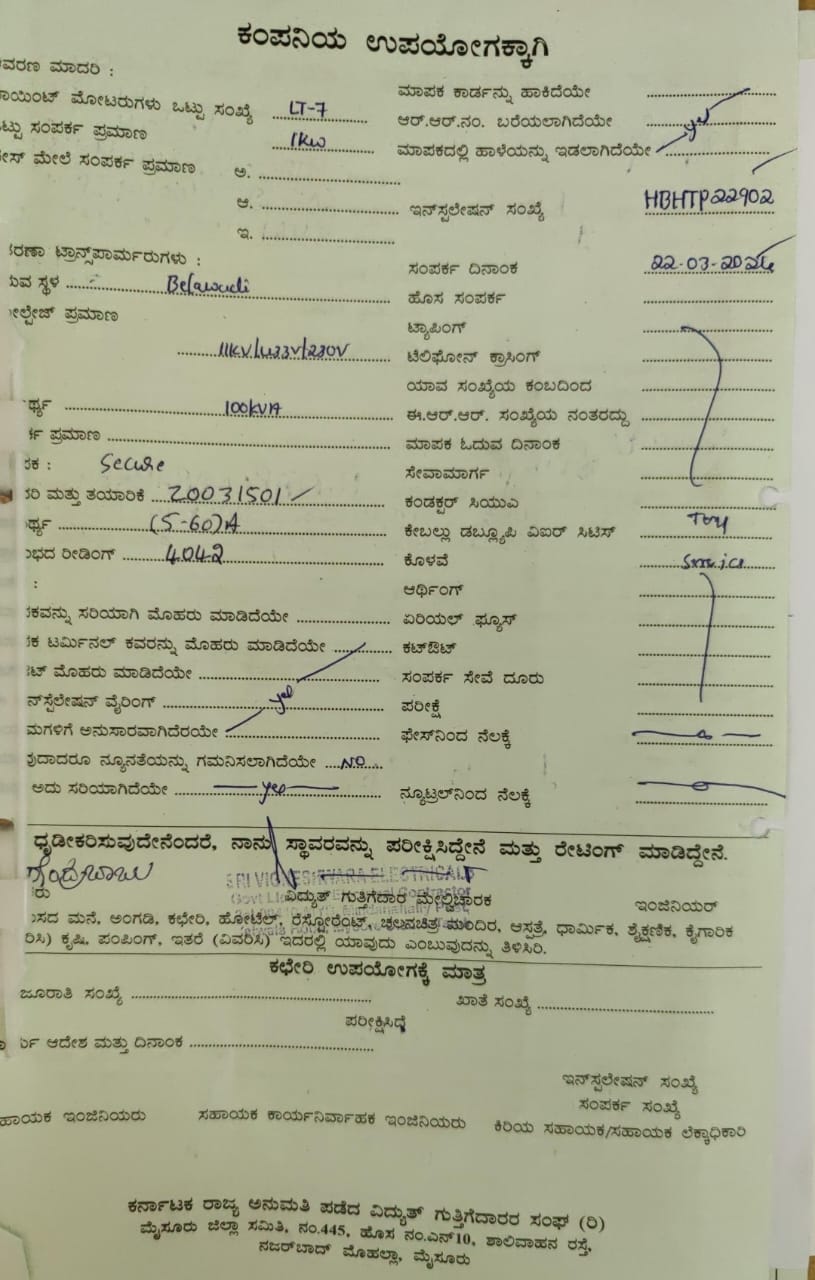 ಕಂಪನಿಯ ಉಪಯೋಗಕ್ಕಾಗಿ
ಾವರಣ ಮಾದರಿ :
ಾಯಿಂಟ್ ಮೋಟರುಗಳು ಒಟ್ಟು ಸಂಖ್ಯೆ LT-7
ಟ್ಟು ಸಂಪರ್ಕ ಪ್ರಮಾಣ 1kw
ೇಸ್ ಮೇಲೆ ಸಂಪರ್ಕ ಪ್ರಮಾಣ ಅ.
ಆ.
ಇ.
ಮಾಪಕ ಕಾರ್ಡನ್ನು ಹಾಕಿದೆಯೇ
ಆರ್.ಆರ್.ನಂ. ಬರೆಯಲಾಗಿದೆಯೇ yes
ಮಾಪಕದಲ್ಲಿ ಹಾಳೆಯನ್ನು ಇಡಲಾಗಿದೆಯೇ
ಇನ್‌ಸ್ಪಲೇಷನ್ ಸಂಖ್ಯೆ HBHTP22902
ಕರಣಾ ಟ್ರಾನ್ಸ್‌ಪಾರ್ಮರುಗಳು :
ುವ ಸ್ಥಳ Belawadi
ೀಲ್ಟೇಜ್ ಪ್ರಮಾಣ
11KV/433V/230V
ರ್ಥ್ಯ 100KVA
ರ್ಕ ಪ್ರಮಾಣ
ಕ : Secure
ರಿ ಮತ್ತು ತಯಾರಿಕೆ 20031501
ರ್ಥ್ಯ (5-60)A
ಂಭದ ರೀಡಿಂಗ್ 4042
:
ಕವನ್ನು ಸರಿಯಾಗಿ ಮೊಹರು ಮಾಡಿದೆಯೇ
ಕ ಟರ್ಮಿನಲ್ ಕವರನ್ನು ಮೊಹರು ಮಾಡಿದೆಯೇ
ಟ್ ಮೊಹರು ಮಾಡಿದೆಯೇ
ನ್‌ಸ್ಪೆಲೇಷನ್ ವೈರಿಂಗ್ yes
ಮಗಳಿಗೆ ಅನುಸಾರವಾಗಿದೆರಯೇ
ುದಾದರೂ ನ್ಯೂನತೆಯನ್ನು ಗಮನಿಸಲಾಗಿದೆಯೇ NO
ಅದು ಸರಿಯಾಗಿದೆಯೇ yes
ಸಂಪರ್ಕ ದಿನಾಂಕ 22-03-2024
ಹೊಸ ಸಂಪರ್ಕ
ಟ್ಯಾಪಿಂಗ್
ಟೆಲಿಫೋನ್ ಕ್ರಾಸಿಂಗ್
ಯಾವ ಸಂಖ್ಯೆಯ ಕಂಬದಿಂದ
ಈ.ಆರ್.ಆರ್. ಸಂಖ್ಯೆಯ ನಂತರದ್ದು
ಮಾಪಕ ಓದುವ ದಿನಾಂಕ
ಸೇವಾಮಾರ್ಗ
ಕಂಡಕ್ಟರ್ ಸಿಯುಎ
ಕೇಬಲ್ಲು ಡಬ್ಲ್ಯೂಪಿ ವಿಐರ್ ಸಿಟಿಸ್
ಕೊಳವೆ
ಆರ್ಥಿಂಗ್
ಏರಿಯಲ್ ಫ್ಯೂಸ್
ಕಟ್‌ಔಟ್
ಸಂಪರ್ಕ ಸೇವೆ ದೂರು
ಪರೀಕ್ಷೆ
ಫೇಸ್‌ನಿಂದ ನೆಲಕ್ಕೆ
ನ್ಯೂಟ್ರಲ್‌ನಿಂದ ನೆಲಕ್ಕೆ
ಧೃಡೀಕರಿಸುವುದೇನೆಂದರೆ, ನಾನು ಸ್ಥಾವರವನ್ನು ಪರೀಕ್ಷಿಸಿದ್ದೇನೆ ಮತ್ತು ರೇಟಿಂಗ್ ಮಾಡಿದ್ದೇನೆ.
SRI VIGNESHWARA ELECTRICALS
ರು ವಿದ್ಯುತ್ ಗುತ್ತಿಗೆದಾರ ಮೇಲ್ವಿಚಾರಕ ಇಂಜಿನಿಯರ್
ಾಸದ ಮನೆ, ಅಂಗಡಿ, ಕಛೇರಿ, ಹೋಟೆಲ್, ರೆಸ್ಟೋರೆಂಟ್, ಚಲನಚಿತ್ರ ಮಂದಿರ, ಆಸ್ಪತ್ರೆ, ಧಾರ್ಮಿಕ, ಶೈಕ್ಷಣಿಕ, ಕೈಗಾರಿಕ
ರಿಸಿ) ಕೃಷಿ, ಪಂಪಿಂಗ್, ಇತರೆ (ವಿವರಿಸಿ) ಇದರಲ್ಲಿ ಯಾವುದು ಎಂಬುವುದನ್ನು ತಿಳಿಸಿರಿ.
ಕಛೇರಿ ಉಪಯೋಗಕ್ಕೆ ಮಾತ್ರ
ಜೂರಾತಿ ಸಂಖ್ಯೆ ಖಾತೆ ಸಂಖ್ಯೆ
ಪರೀಕ್ಷಿಸಿದೆ
ರ್ಯ ಆದೇಶ ಮತ್ತು ದಿನಾಂಕ
ಇನ್‌ಸ್ಪಲೇಷನ್ ಸಂಖ್ಯೆ
ಸಂಪರ್ಕ ಸಂಖ್ಯೆ
ಹಾಯಕ ಇಂಜಿನಿಯರು ಸಹಾಯಕ ಕಾರ್ಯನಿರ್ವಾಹಕ ಇಂಜಿನಿಯರು ಕಿರಿಯ ಸಹಾಯಕ/ಸಹಾಯಕ ಲೆಕ್ಕಾಧಿಕಾರಿ
ಕರ್ನಾಟಕ ರಾಜ್ಯ ಅನುಮತಿ ಪಡೆದ ವಿದ್ಯುತ್ ಗುತ್ತಿಗೆದಾರರ ಸಂಘ (ರಿ)
ಮೈಸೂರು ಜಿಲ್ಲಾ ಸಮಿತಿ, ನಂ.445, ಹೊಸ ನಂ.ಎನ್10, ಶಾಲಿವಾಹನ ರಸ್ತೆ,
ನಜರ್‌ಬಾದ್ ಮೊಹಲ್ಲಾ, ಮೈಸೂರು